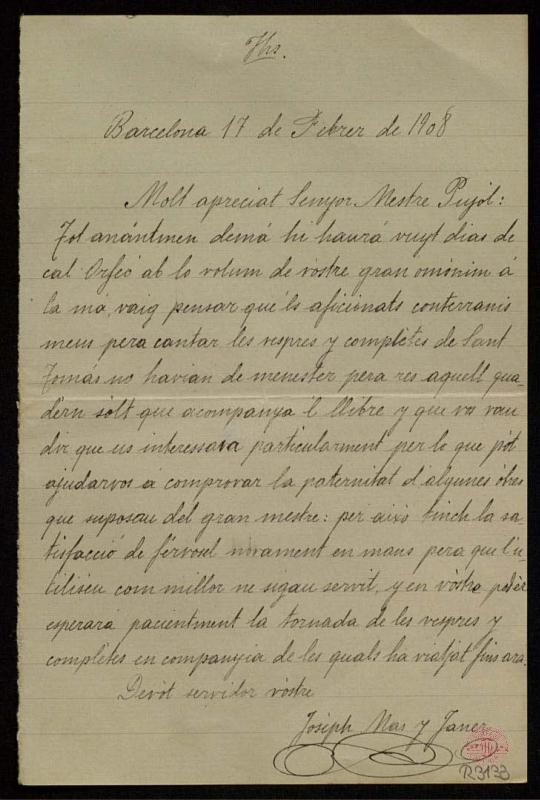 Jhs.
Barcelona 17 de Febrer de 1908
Molt apreciat Senyor Mestre Pujol:
Tot anántmen demá hi haurá vuyt dias de
cal Orfeó ab lo volum de vostre gran omónim á
la má, vaig pensar que 'ls aficionats conterranis
meus pera cantar les vespres y complètes de Sant
Tomás no havian de menester pera res aquell qua-
dern sòlt que acompanya 'l llibre y que vos vau
dir que us interessava particularment per lo que pót
ajudarvos á comprovar la paternitat d'algunes óbres
que suposau del gran mestre: per aixó tinch la sa-
tisfacció de férvosel novament en mans pera que l'u-
tiliseu com millor ne sigau servit, y en vòstre podèr
esperará pacientment la tornada de les vespres y
complètes en companyia de les quals ha viatjat fins ara.
Devòt servidor vòstre
Joseph Mas y Janer
R3133